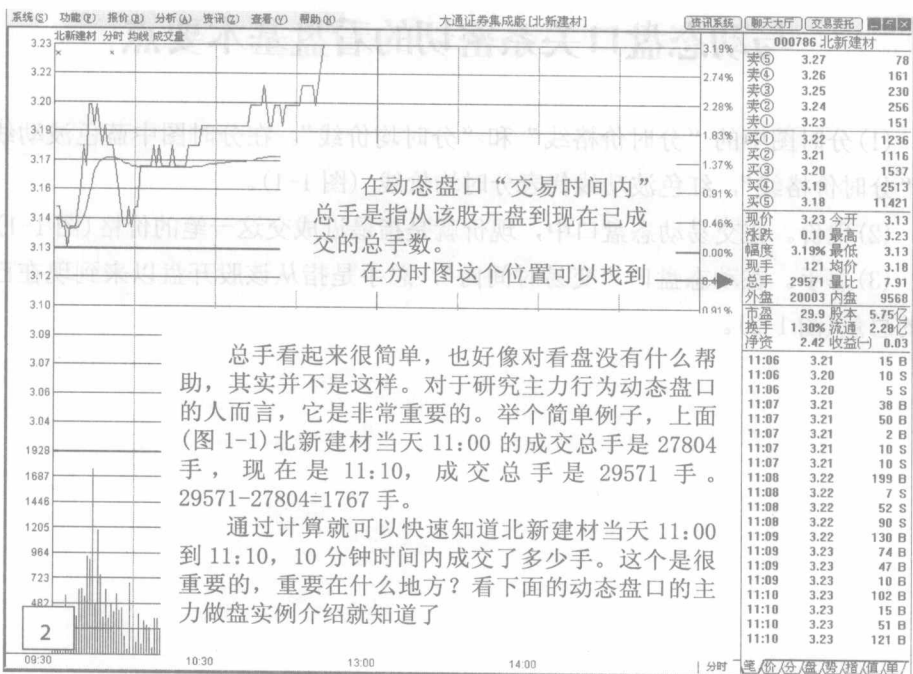 系统(S) 功能(F) 报价(B) 分析(A) 资讯(Z) 查看(V) 帮助(H) 大通证券集成版[北新建材] 资讯系统 聊天大厅 交易委托
北新建材 分时 均线 成交量
000786 北新建材
3.23
3.22
3.20
3.19
3.17
3.16
3.14
3.13
3.12
3.10
3.09
3.07
3.06
3.04
1928
1687
1446
1205
964
723
482
3.19%
2.74%
2.28%
1.83%
1.37%
0.91%
0.46%
0.00%
0.91%
在动态盘口中，交易时间内
总手是指从该股开盘到现在已成
交的总手数。
在分时图这个位置可以找到
总手看起来很简单，也好像对看盘没有什么帮
助，其实并不是这样。对于研究主力行为动态盘口
的人而言，它是非常重要的。举个简单例子，上面
(图 1-1)北新建材当天 11:00 的成交总手是 27804
手，现在是 11:10，成交总手是 29571 手。
29571-27804=1767 手。
通过计算就可以快速知道北新建材当天 11:00
到 11:10，10 分钟时间内成交了多少手。这个是很
重要的，重要在什么地方？看下面的动态盘口的主
力做盘实例介绍就知道了
2
09:30 10:30 13:00 14:00 分时
卖⑤ 3.27 78
卖④ 3.26 161
卖③ 3.25 230
卖② 3.24 256
卖① 3.23 151
买① 3.22 1236
买② 3.21 1116
买③ 3.20 1537
买④ 3.19 2513
买⑤ 3.18 11421
现价 3.23 今开 3.13
涨跌 0.10 最高 3.23
幅度 3.19% 最低 3.13
现手 121 均价 3.18
总手 29571 量比 7.91
外盘 20003 内盘 9568
市盈 29.9 股本 5.75亿
换手 1.30% 流通 2.28亿
净资 2.42 收益(一) 0.03
11:06 3.21 15 B
11:06 3.20 10 S
11:06 3.20 5 S
11:07 3.21 38 B
11:07 3.21 50 B
11:07 3.21 2 B
11:07 3.21 10 S
11:07 3.21 10 S
11:08 3.22 199 B
11:08 3.22 7 S
11:08 3.22 52 S
11:08 3.22 90 S
11:09 3.22 130 B
11:09 3.23 74 B
11:09 3.23 47 B
11:09 3.23 10 B
11:10 3.23 102 B
11:10 3.23 15 B
11:10 3.23 51 B
11:10 3.23 121 B
笔 价 分 盘 势 指 值 单